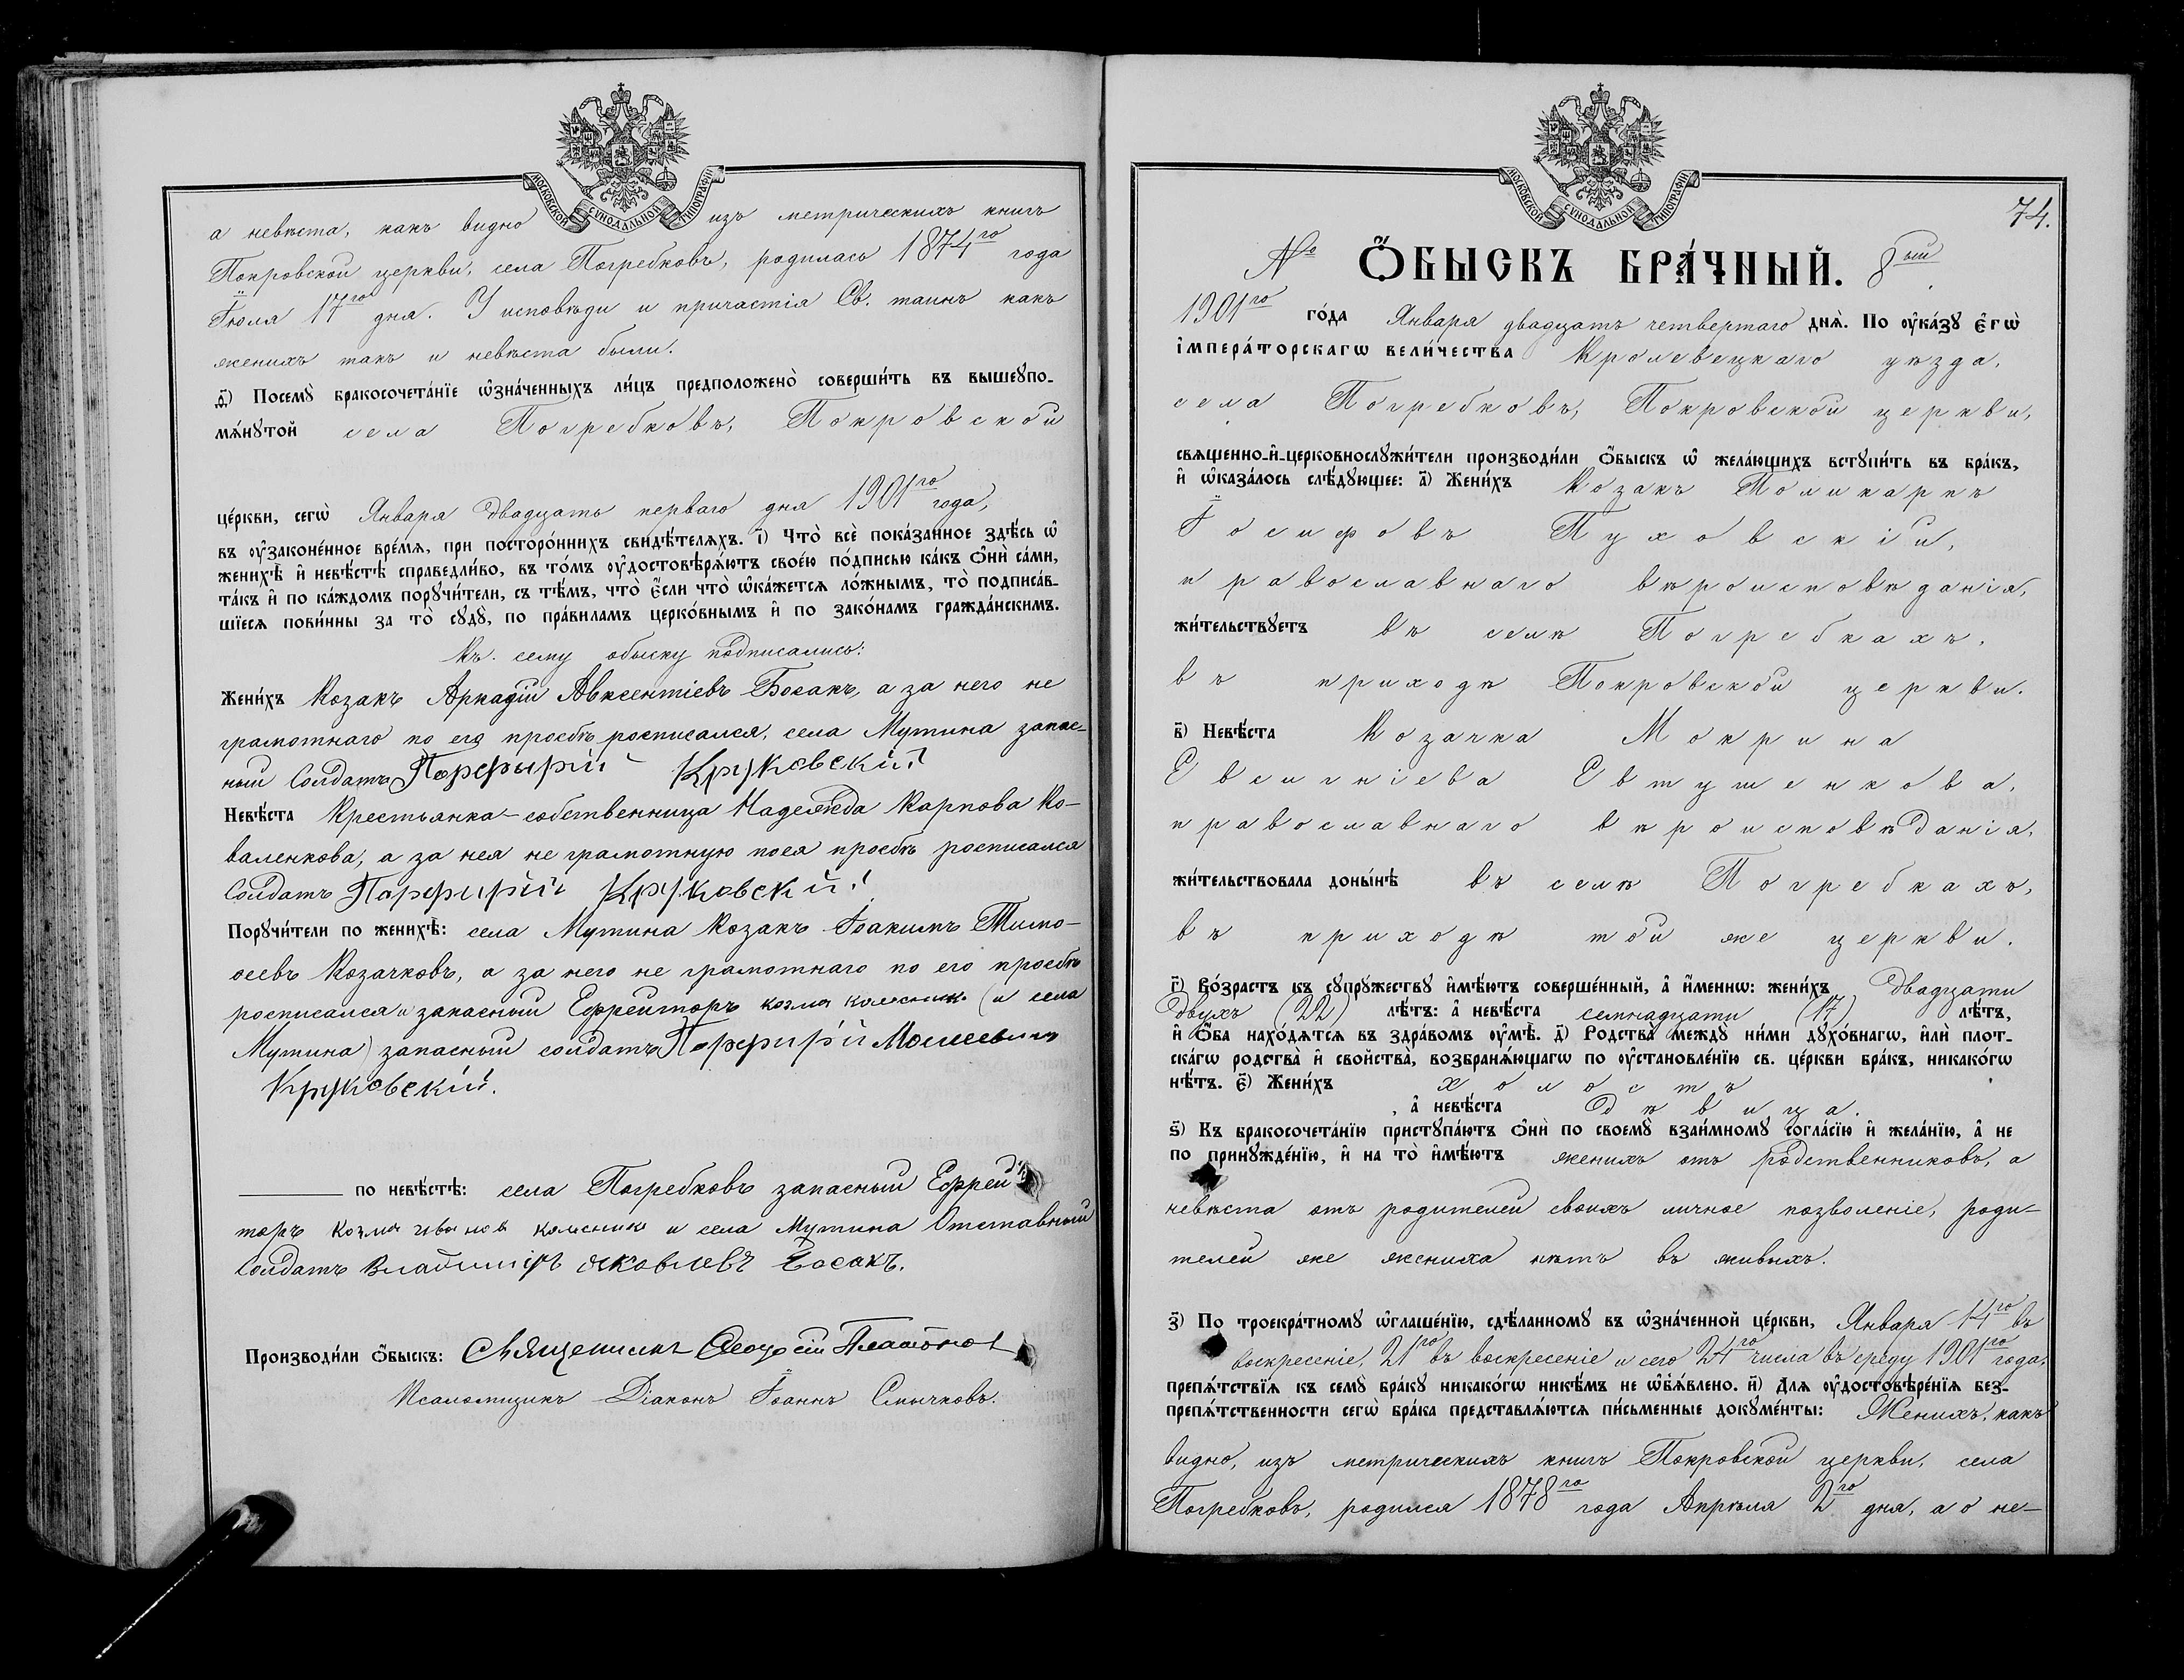 МОСКОВСКОЙ СѴНОДАЛЬНОЙ ТИПОГРАФІИ
а невѣста, какъ видно изъ метрическихъ книгъ
Покровской церкви, села Погребковъ, родилась 1874го года
Іюля 17го дня. У исповѣди и причастія Св. таинъ какъ
женихъ такъ и невѣста были.
ѳ҃) Посемꙋ̀ бракосочета́нїе ѡ҆зна́ченныхъ ли́цъ предположено̀ соверши́ть въ вышеꙋпо-
мѧ́нꙋтой села Погребковъ, Покровской
це́ркви, сегѡ̀ Января двадцать перваго дня 1901го года,
въ ᲂу҆законе́нное вре́мѧ, при посторо́ннихъ свидѣ́телѧхъ. і҃) Что̀ всѐ пока́занное здѣ́сь ѡ҆
женихѣ̀ и҆ невѣ́стѣ справедли́во, въ то́мъ ᲂу҆достовѣрѧ́ютъ свое́ю по́дписью ка́къ ѻ҆нѝ са́ми,
та́къ и҆ по ка́ждомъ порꙋчи́тели, съ тѣ́мъ, что̀ є҆́сли что̀ ѡ҆ка́жетсѧ ло́жнымъ, то̀ подписа́в-
шїесѧ пови́нны за то̀ сꙋдꙋ̀, по пра́виламъ церко́внымъ и҆ по зако́намъ гражда́нскимъ.
Къ сему обыску подписались:
Жени́хъ Козакъ Аркадій Авксентіевъ Босакъ, а за него не
грамотнаго по его просьбѣ росписался, села Мутина запас-
ный Солдатъ Порфырій Круковскій
Невѣ́ста Крестьянка-собственница Надежда Карпова Ко-
валенкова, а за нея не грамотную поея просьбѣ росписался
Солдатъ Парфирій Круковскій
Порꙋчи́тели по женихѣ̀: села Мутина Козакъ Іоакимъ Тимо-
ѳеевъ Козачковъ, а за него не грамотнаго по его просьбѣ
росписался запасный Ефрейторъ козма колесник (и села
Мутина) запасный солдатъ Порфирій Моисеевич
Круковскій.
по невѣ́стѣ: села Погребковъ запасный Ефрей-
торъ Козма ивановъ колесник и села Мутина Отставный
Солдатъ Владимиръ яковлевъ Босакъ.
Производи́ли ѻ҆́быскъ: Священникъ Ѳеодосій Платонов
Псаломщикъ Діаконъ Іоаннъ Смычковъ.
МОСКОВСКОЙ СѴНОДАЛЬНОЙ ТИПОГРАФІИ
74.
№ Ѻ҆́БЫСКЪ БРА́ЧНЫЙ. 8ый
1901го го́да Января двадцать четвертаго днѧ̀. По ᲂу҆ка́зꙋ є҆гѡ̀
і҆мпера́торскагѡ вели́чества Кролевецкаго уѣзда,
села Погребковъ, Покровской церкви,
свѧщенно-и҆-церковнослꙋжи́тели производи́ли ѻ҆́быскъ ѡ҆ жела́ющихъ встꙋпи́ть въ бра́къ,
и҆ ѡ҆каза́лось слѣ́дꙋющее: а҃) Жени́хъ Козакъ Поликарпъ
Іосифовъ Пуховскій,
православнаго вѣроисповѣданія,
жи́тельствꙋетъ въ селѣ Погребкахъ,
въ приходѣ Покровской церкви.
в҃) Невѣ́ста Козачка Мокрина
Евсигніева Евтушенкова,
православнаго вѣроисповѣданія,
жи́тельствовала доны́нѣ въ селѣ Погребкахъ,
въ приходѣ той же церкви.
г҃) Во́зрастъ къ сꙋпрꙋ́жествꙋ и҆мѣ́ютъ соверше́нный, а҆ и҆́меннѡ: жени́хъ двадцати
двухъ (22) лѣ́тъ: а҆ невѣ́ста семнадцати (17) лѣ́тъ,
и҆ ѻ҆́ба нахо́дѧтсѧ въ здра́вомъ ᲂу҆мѣ̀. д҃) Родства̀ междꙋ̀ ни́ми дꙋхо́внагѡ, и҆лѝ плот-
ска́гѡ родства̀ и҆ свойства̀, возбранѧ́ющагѡ по ᲂу҆становле́нїю св. це́ркви бра́къ, никако́гѡ
нѣ́тъ. є҃) Жени́хъ холостъ
, а҆ невѣ́ста дѣвица.
ѕ҃) Къ бракосочета́нїю пристꙋпа́ютъ ѻ҆нѝ по своемꙋ̀ взаи́мномꙋ согла́сїю и҆ жела́нїю, а҆ не
по принꙋжде́нїю, и҆ на то̀ и҆мѣ́ютъ женихъ отъ родственниковъ, а
невѣста отъ родителей своихъ личное позволеніе, роди-
телей же жениха нѣтъ въ живыхъ.
з҃) По троекра́тномꙋ ѡ҆глаше́нїю, сдѣ́ланномꙋ въ ѡ҆зна́ченной це́ркви, Января 14го въ
воскресеніе, 21го въ воскресеніе и сего 24го числа въ среду 1901го года,
препѧ́тствїѧ къ семꙋ̀ бра́кꙋ никако́гѡ никѣ́мъ не ѡ҆б̾ѧ́влено. и҃) Длѧ ᲂу҆достовѣре́нїѧ без-
препѧ́тственности сегѡ̀ бра́ка представлѧ́ютсѧ пи́сьменные докꙋме́нты: Женихъ, какъ
видно, изъ метрическихъ книгъ Покровской церкви, села
Погребковъ, родился 1878го года Апрѣля 2го дня, а о не-